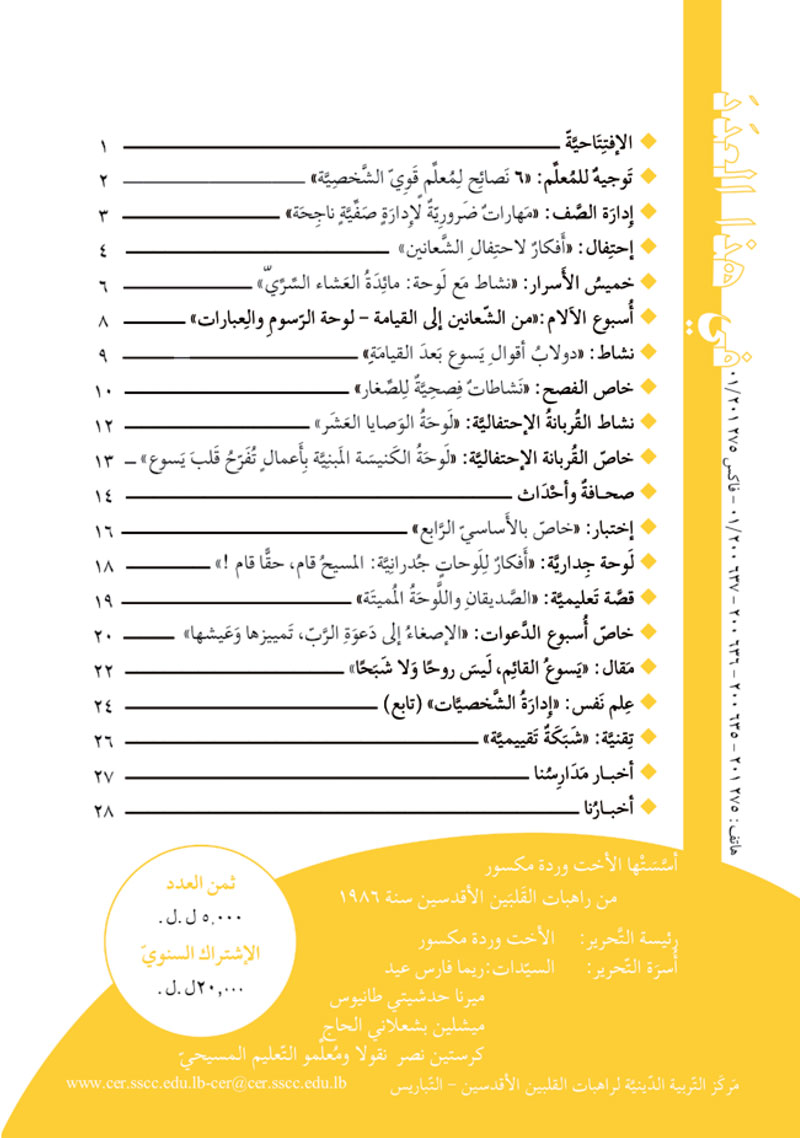 في هذا العدد
الإفتِتَاحيَّةً ١
تَوجيهٌ للمُعلِّم: «٦ نَصائِح لِمُعلِّمٍ قَوِيّ الشَّخصِيَّة» ٢
إدارَة الصَّف: «مَهاراتٌ ضَروريّةٌ لإدارَةٍ صَفِّيَّةٍ ناجِحَة» ٣
إحتِفال: «أَفكارٌ لاحتِفالِ الشَّعانين» ٤
خميسُ الأَسرار: «نشاط مَع لَوحة: مائِدَةُ العَشاء السِّرِّيّ» ٦
أُسبوع الآلام: «من الشّعانين إلى القيامة – لوحة الرّسومِ والعِبارات» ٨
نشاط: «دولابُ أقوالِ يَسوع بَعدَ القيامَةِ» ٩
خاص الفصح: «نَشاطاتٌ فِصحِيَّةٌ لِلصِّغار» ١٠
نشاط القُربانةُ الإحتفاليَّة: «لَوحَةُ الوَصايا العَشَر» ١٢
خاصّ القُربانة الإحتفاليَّة: «لَوحَةُ الكَنيسَة المَبنِيَّة بِأَعمالٍ تُفَرّحُ قَلبَ يَسوع» ١٣
صحـافةٌ وأحْدَاث ١٤
إختبار: «خاصّ بالأَساسيّ الرَّابع» ١٦
لَوحة جِداريَّة: «أَفكارٌ لِلَوحاتٍ جُدرانِيَّة: المسيحُ قام، حقًّا قام !» ١٨
قصَّة تَعليميَّة: «الصَّديقانِ واللَّوحَةُ المُميتَة» ١٩
خاصّ أُسبوع الدَّعوات: «الإصغاءُ إلى دَعوَةِ الرَّبّ، تَمييزها وَعَيشها» ٢٠
مَقال: «يَسوعُ القائِم، لَيسَ روحًا وَلا شَبَحًا» ٢٢
عِلم نَفس: «إدارَةُ الشَّخصيَّات» (تابع) ٢٤
تِقنيَّة: «شَبَكَةٌ تَقييميَّة» ٢٦
أخبـار مَدَارِسُنا ٢٧
أخبـارُنا ٢٨
هاتف: ٠١/٢٠١٢٧٥ – ٢٠٠٦٣٥ – ٢٠٠٦٣٦ – ٠١/٢٠٠٦٣٧ – فاكس ٠١/٢٠١٢٧٥
أسَّسَتْها الأخت وردة مكسور
من راهبات القَلبَين الأقدسين سنة ١٩٨٦
رئيسة التَّحرير: الأخت وردة مكسور
أُسرَة التّحرير: السيّدات: ريما فارس عيد
ميرنا حدشيتي طانيوس
ميشلين بشعلاني الحاج
كرستين نصر نقولا ومُعلِّمو التّعليم المسيحيّ
ثمن العدد
٥,٠٠٠ ل.ل.
الإشتراك السنويّ
٢٠,٠٠٠ل.ل.
مَركَز التّربية الدّينيَّة لراهبات القلبين الأقدسين – التّباريس
www.cer.sscc.edu.lb-cer@cer.sscc.edu.lb